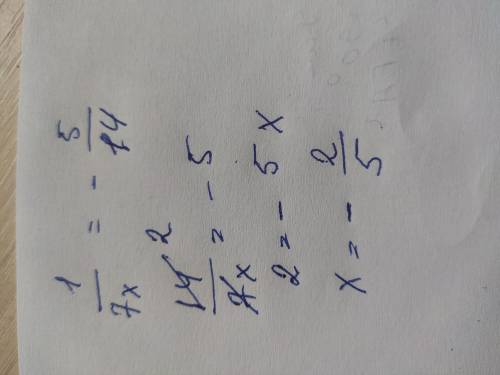 1/7x = - 5/14
14 2/7x = - 5
2 = - 5x
x = - 2/5